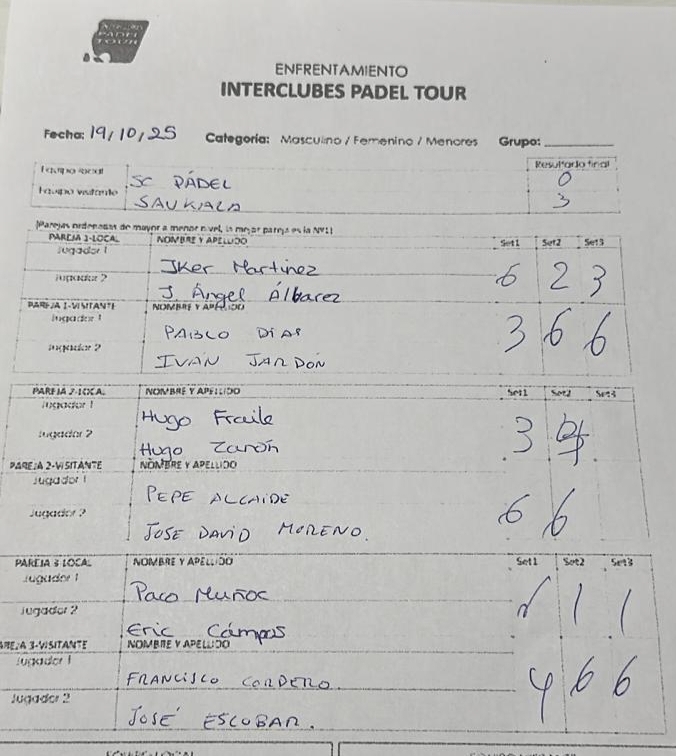 PADEL
TOUR
ENFRENTAMIENTO
INTERCLUBES PADEL TOUR
Fecha: 19/10/25 Categoria: Masculino / Femenino / Menores Grupo:
Equipo local SC PÁDEL Resultado final 0
Equipo visitante SAUKIALA 3
(Parejas ordenadas de mayor a menor nivel, la mejor pareja es la Nº1)
PAREJA 1-LOCAL NOMBRE Y APELLIDO Set1 Set2 Set3
Jugador 1 Iker Martinez 6 2 3
Jugador 2 J. Ángel Álbarez
PAREJA 1-VISITANTE NOMBRE Y APELLIDO
Jugador 1 PABLO DÍAS 3 6 6
Jugador 2 IVAN JARDÓN
PAREJA 2-LOCAL NOMBRE Y APELLIDO Set1 Set2 Set3
Jugador 1 Hugo Fraile 3
Jugador 2 Hugo Zarón
PAREJA 2-VISITANTE NOMBRE Y APELLIDO
Jugador 1 PEPE ALCAIDE 6 6
Jugador 2 JOSE DAVID MORENO.
PAREJA 3-LOCAL NOMBRE Y APELLIDO Set1 Set2 Set3
Jugador 1 Paco Muñoc 1 1
Jugador 2 Eric Cámpos
PAREJA 3-VISITANTE NOMBRE Y APELLIDO
Jugador 1 FRANCISCO CORDERO. 4 6 6
Jugador 2 JOSÉ ESCOBAR.